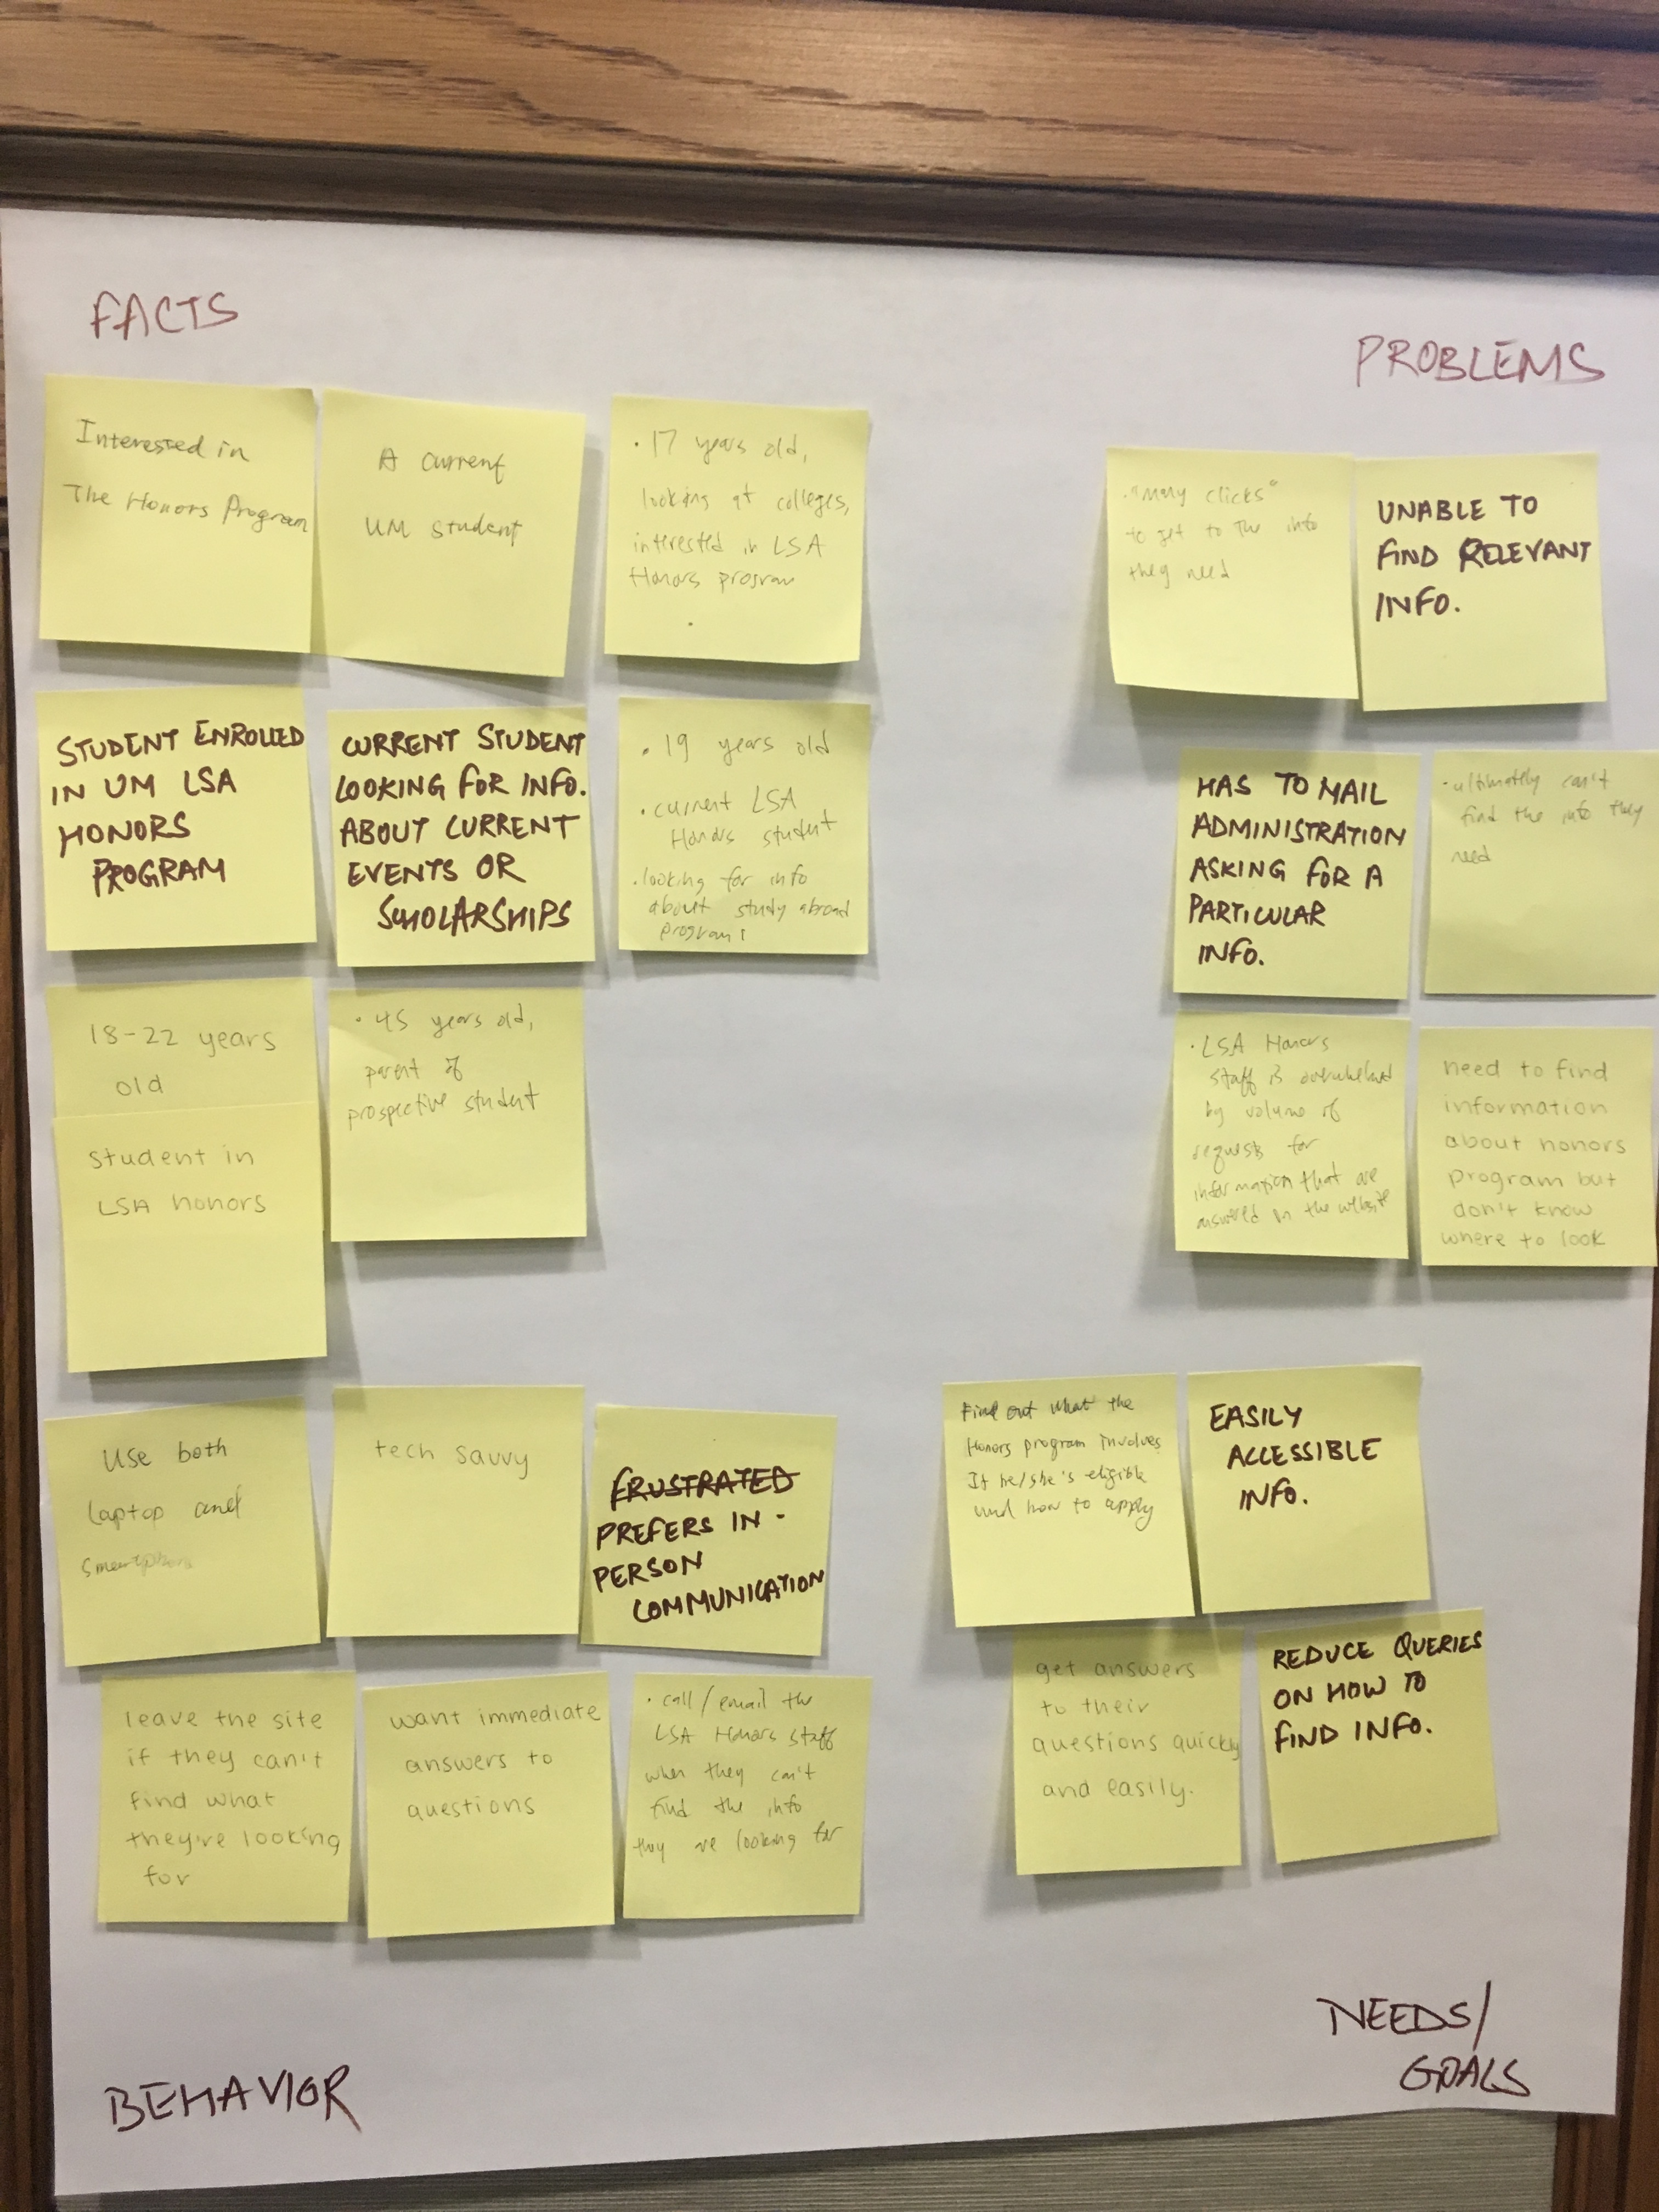 FACTS
Interested in
The Honors Program
A current
UM student
• 17 years old,
looking at colleges,
interested in LSA
Honors program
STUDENT ENROLLED
IN UM LSA
HONORS
PROGRAM
CURRENT STUDENT
LOOKING FOR INFO.
ABOUT CURRENT
EVENTS OR
SCHOLARSHIPS
• 19 years old
• current LSA
Honors student
• looking for info
about study abroad
programs
18-22 years
old
student in
LSA honors
• 45 years old,
parent of
prospective student
PROBLEMS
• "many clicks"
to get to the info
they need
UNABLE TO
FIND RELEVANT
INFO.
HAS TO MAIL
ADMINISTRATION
ASKING FOR A
PARTICULAR
INFO.
• ultimately can't
find the info they
need
• LSA Honors
staff is overwhelmed
by volume of
requests for
information that are
answered on the website
need to find
information
about honors
program but
don't know
where to look
Use both
laptop and
smartphone
tech savvy
FRUSTRATED
PREFERS IN-
PERSON
COMMUNICATION
leave the site
if they can't
find what
they're looking
for
want immediate
answers to
questions
• call/email the
LSA Honors staff
when they can't
find the info
they are looking for
BEHAVIOR
Find out what the
Honors program involves
If he/she's eligible
and how to apply
EASILY
ACCESSIBLE
INFO.
get answers
to their
questions quickly
and easily.
REDUCE QUERIES
ON HOW TO
FIND INFO.
NEEDS/
GOALS